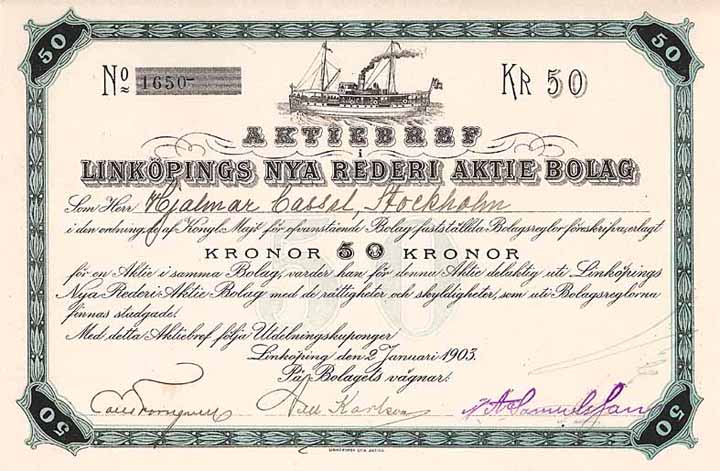 50 50
No 1650- KR 50
AKTIEBREF
i
LINKÖPINGS NYA REDERI AKTIE BOLAG
Som Herr Hjalmar Cassel, Stockholm
i den ordning de af Kongl. Majt för ofvanstående Bolag fastställda Bolagsreglor föreskrifva, erlagt
KRONOR 50 KRONOR
för en Aktie i samma Bolag, varder han för denna Aktie delaktig uti Linköpings
Nya Rederi Aktie Bolag med de rättigheter och skyldigheter, som uti Bolagsreglorna
finnas stadgade.
Med detta Aktiebref följa Utdelningskuponger
Linköping den 2 Januari 1903.
På Bolagets vägnar:
Karlson N A Samuelsson
50 50